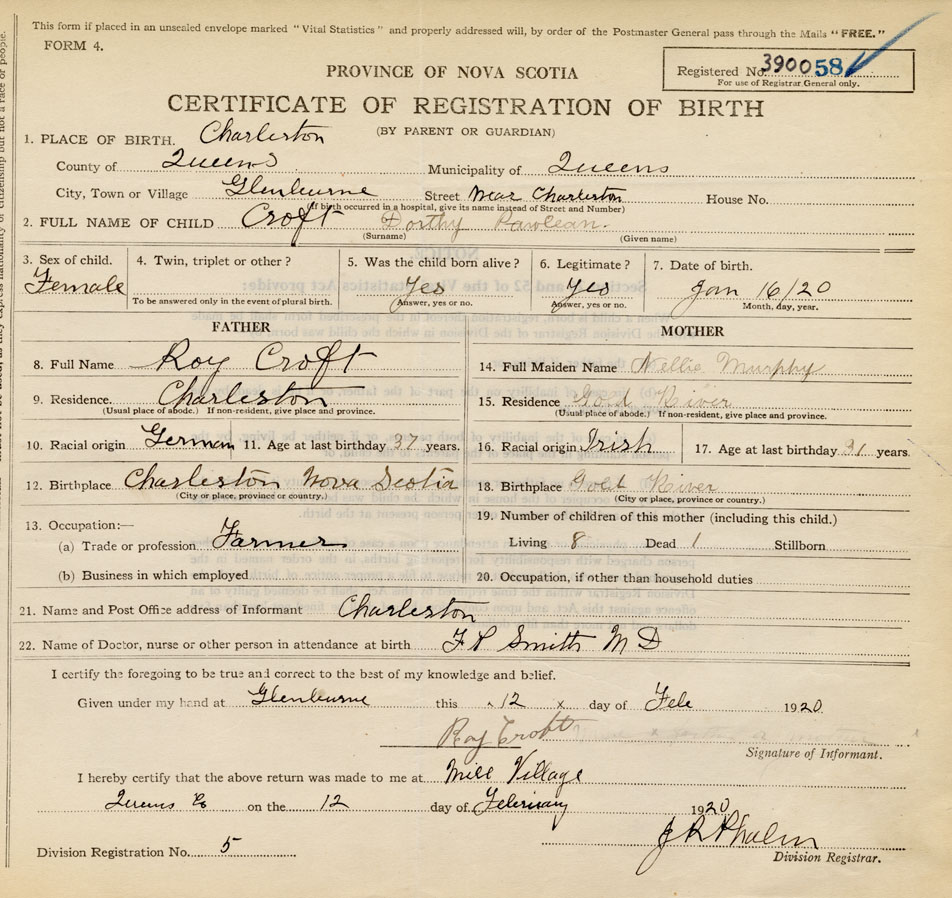 This form if placed in an unsealed envelope marked "Vital Statistics" and properly addressed will, by order of the Postmaster General pass through the Mails "FREE."
FORM 4.
Registered No. 390058
For use of Registrar General only.
PROVINCE OF NOVA SCOTIA
CERTIFICATE OF REGISTRATION OF BIRTH
(BY PARENT OR GUARDIAN)
1. PLACE OF BIRTH. Charleston
County of Queens Municipality of Queens
City, Town or Village Glenburne Street Near Charleston House No.
(If birth occurred in a hospital, give its name instead of Street and Number)
2. FULL NAME OF CHILD Croft Dorthy
(Surname) (Given name)
3. Sex of child. 4. Twin, triplet or other? 5. Was the child born alive? 6. Legitimate? 7. Date of birth.
Female Yes Yes Jan 16/20
To be answered only in the event of plural birth. Answer, yes or no. Answer, yes or no. Month, day, year.
FATHER MOTHER
8. Full Name Roy Croft
14. Full Maiden Name Nellie Murphy
9. Residence. Charleston
(Usual place of abode.) If non-resident, give place and province.
15. Residence Gold River
(Usual place of abode.) If non-resident, give place and province.
10. Racial origin German 11. Age at last birthday 37 years.
16. Racial origin Irish 17. Age at last birthday 31 years.
12. Birthplace Charleston Nova Scotia
(City or place, province or country.)
18. Birthplace Gold River
(City or place, province or country.)
13. Occupation:—
(a) Trade or profession Farmer
(b) Business in which employed
19. Number of children of this mother (including this child.)
Living 8 Dead 1 Stillborn
20. Occupation, if other than household duties
21. Name and Post Office address of Informant Charleston
22. Name of Doctor, nurse or other person in attendance at birth F P Smith M D
I certify the foregoing to be true and correct to the best of my knowledge and belief.
Given under my hand at Glenburne this 12 x day of Feb 1920.
Roy Croft
Signature of Informant.
I hereby certify that the above return was made to me at Mill Village
Queens Co on the 12 day of February 1920
Division Registration No. 5
Division Registrar.